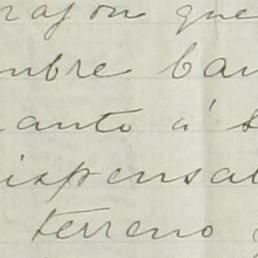 razon que
mbre ban
uanto á s
ispensab
terreno